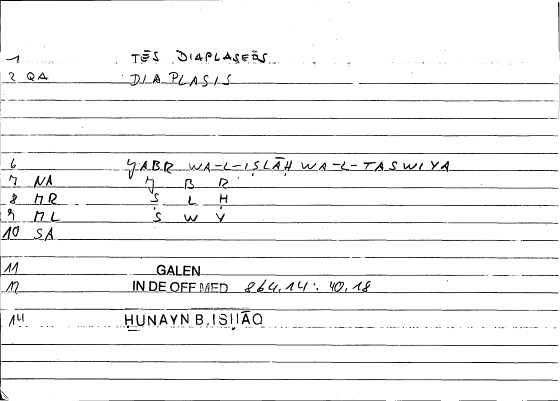 1 TĒS DIAPLASEŌS
2 QA DIAPLASIS
6 ǦABR WA-L-IṢLĀḤ WA-L-TASWIYA
7 NA Ǧ B R
8 MR Ṣ L Ḥ
9 ML S W Y
10 SA
11 GALEN
12 IN DE OFF MED 864,14 : 40,18
14 ḤUNAYN B. ISḤĀQ